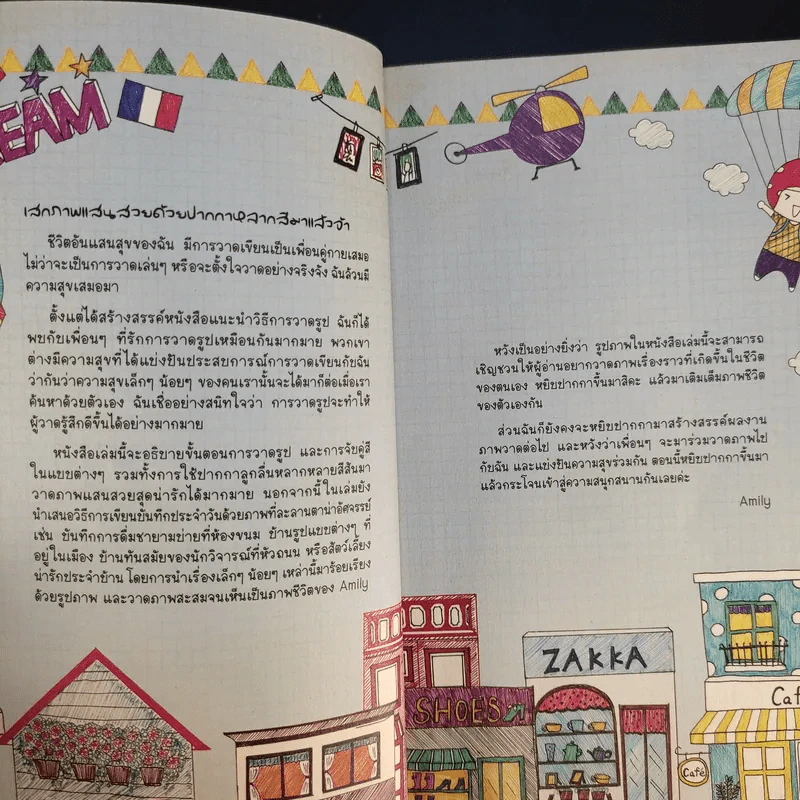 EAM
เสกภาพแสนสวยด้วยปากกาหลากสีมาแล้วจ้า
ชีวิตอันแสนสุขของฉัน มีการวาดเขียนเป็นเพื่อนคู่กายเสมอ
ไม่ว่าจะเป็นการวาดเล่นๆ หรือจะตั้งใจวาดอย่างจริงจัง ฉันล้วนมี
ความสุขเสมอมา
ตั้งแต่ได้สร้างสรรค์หนังสือแนะนำวิธีการวาดรูป ฉันก็ได้
พบกับเพื่อนๆ ที่รักการวาดรูปเหมือนกันมากมาย พวกเขา
ต่างมีความสุขที่ได้แบ่งปันประสบการณ์การวาดเขียนกับฉัน
ว่ากันว่าความสุขเล็กๆ น้อยๆ ของคนเรานั้นจะได้มาก็ต่อเมื่อเรา
ค้นหาด้วยตัวเอง ฉันเชื่ออย่างสนิทใจว่า การวาดรูปจะทำให้
ผู้วาดรู้สึกดีขึ้นได้อย่างมากมาย
หนังสือเล่มนี้จะอธิบายขั้นตอนการวาดรูป และการจับคู่สี
ในแบบต่างๆ รวมทั้งการใช้ปากกาลูกลื่นหลากหลายสีสันมา
วาดภาพแสนสวยสุดน่ารักได้มากมาย นอกจากนี้ ในเล่มยัง
นำเสนอวิธีการเขียนบันทึกประจำวันด้วยภาพที่ละลานตาน่าอัศจรรย์
เช่น บันทึกการดื่มชายามบ่ายที่ห้องขนม บ้านรูปแบบต่างๆ ที่
อยู่ในเมือง บ้านทันสมัยของนักวิจารณ์ที่หัวถนน หรือสัตว์เลี้ยง
น่ารักประจำบ้าน โดยการนำเรื่องเล็กๆ น้อยๆ เหล่านี้มาร้อยเรียง
ด้วยรูปภาพ และวาดภาพสะสมจนเห็นเป็นภาพชีวิตของ Amily
หวังเป็นอย่างยิ่งว่า รูปภาพในหนังสือเล่มนี้จะสามารถ
เชิญชวนให้ผู้อ่านอยากวาดภาพเรื่องราวที่เกิดขึ้นในชีวิต
ของตนเอง หยิบปากกาขึ้นมาสิคะ แล้วมาเติมเต็มภาพชีวิต
ของตัวเองกัน
ส่วนฉันก็ยังคงจะหยิบปากกามาสร้างสรรค์ผลงาน
ภาพวาดต่อไป และหวังว่าเพื่อนๆ จะมาร่วมวาดภาพไป
กับฉัน และแบ่งปันความสุขร่วมกัน ตอนนี้หยิบปากกาขึ้นมา
แล้วกระโจนเข้าสู่ความสนุกสนานกันเลยค่ะ
Amily
ZAKKA
SHOES
Caf
Café